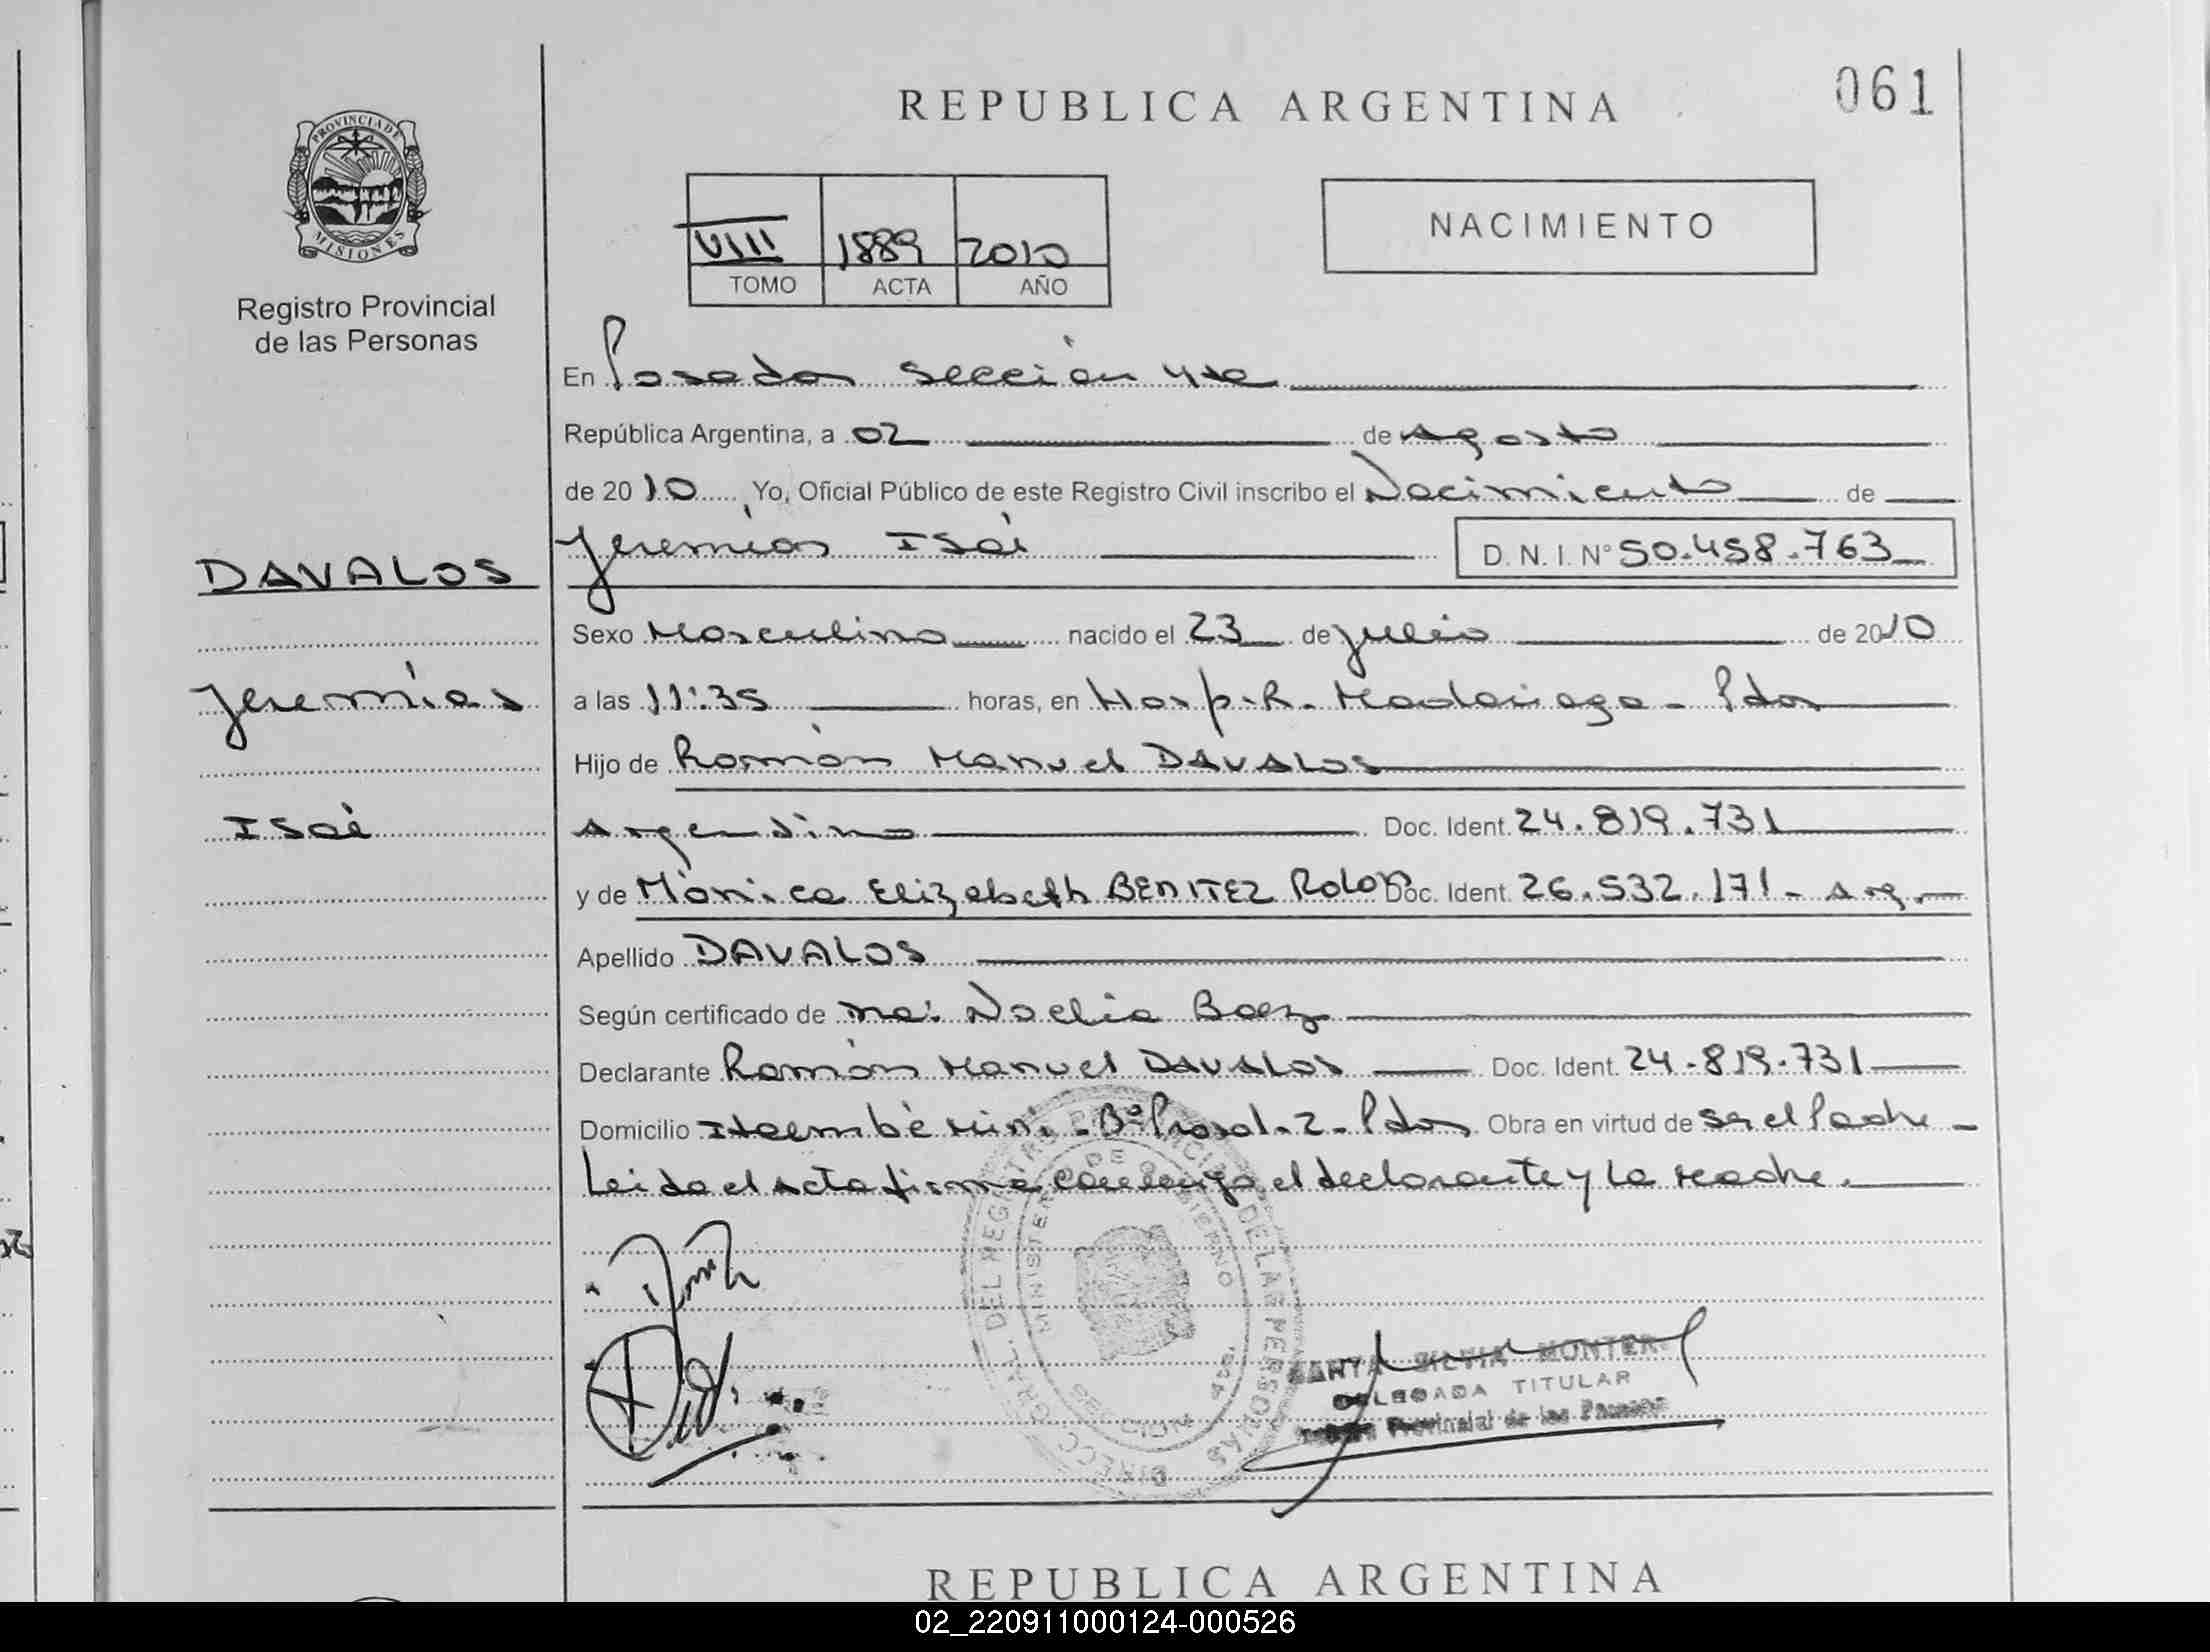 REPUBLICA ARGENTINA
061
PROVINCIA DE
MISIONES
Registro Provincial
de las Personas
VIII 1889 2010
TOMO ACTA AÑO
NACIMIENTO
En Posadas Sección 4ta
República Argentina, a 02 de Agosto
de 2010 Yo, Oficial Público de este Registro Civil inscribo el Nacimiento de
DAVALOS
Jeremías Isaí
Jeremías Isaí D. N. I. N° 50.458.763
Sexo Masculino nacido el 23 de julio de 2010
a las 11:35 horas, en Hosp. R. Madariaga - Pdas
Hijo de Ramón Manuel DAVALOS
Argentino Doc. Ident. 24.819.731
y de Mónica Elizabeth BENITEZ Rolon Doc. Ident. 26.532.171 - Arg.
Apellido DAVALOS
Según certificado de Noelia Baez
Declarante Ramón Manuel DAVALOS Doc. Ident. 24.819.731
Domicilio Itaembé Miní - B° 2 - Pdas Obra en virtud de ser el Padre
Leida el Acta firma conmigo el declarante y la Madre.
DIRECC. GRAL. DEL REGISTRO PROVINCIAL DE LAS PERSONAS
MINISTERIO DE GOBIERNO
MISIONES
SILVIA MONTERO
DELEGADA TITULAR
Provincial de las Personas
REPUBLICA ARGENTINA
02_220911000124-000526